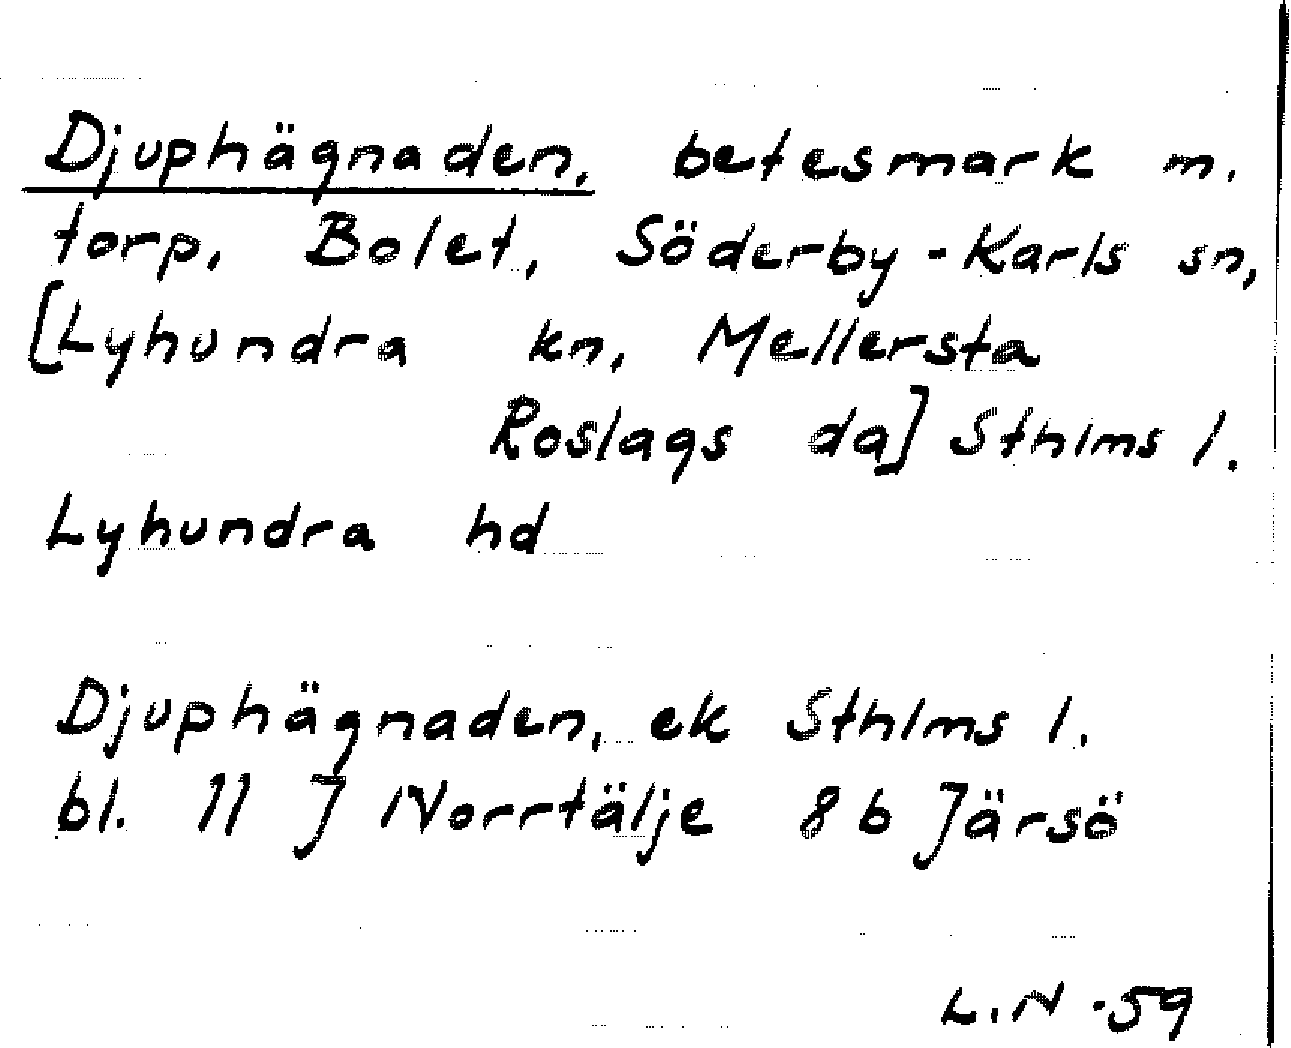 Djuphägnaden, betesmark m.
torp, Bolet, Söderby-Karls sn,
[Lyhundra kn, Mellersta
Roslags da] Sthlms l.
Lyhundra hd
Djuphägnaden, ek Sthlms l.
bl. 11 J Norrtälje 8b Järsö
L.N -59